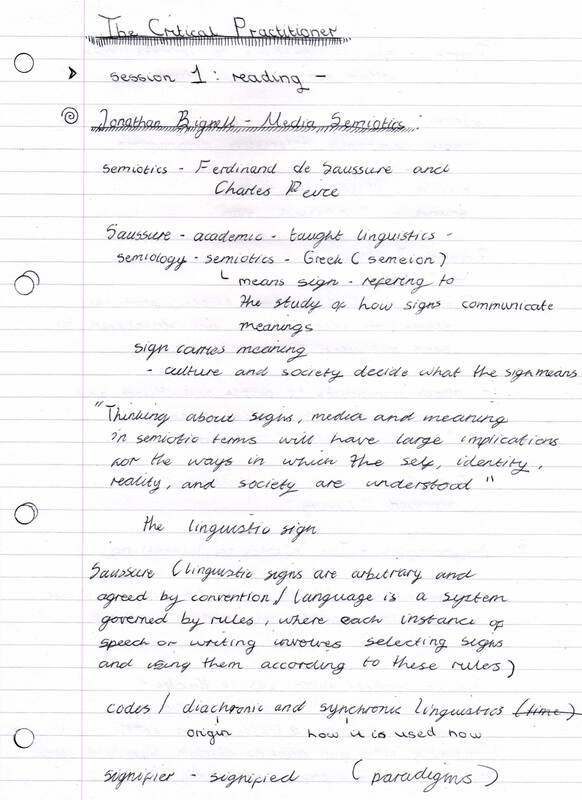 The Critical Practitioner
session 1 : reading -
Jonathan Bignell - Media Semiotics :
semiotics - Ferdinand de Saussure and
Charles Peirce
Saussure - academic - taught linguistics -
semiology - semiotics - Greek (semeion)
means sign - refering to
the study of how signs communicate
meanings
sign carries meaning
- culture and society decide what the sign means
"Thinking about signs, media and meaning
in semiotic terms will have large implications
for the ways in which the self, identity,
reality, and society are understood"
the linguistic sign
Saussure (linguistic signs are arbitrary and
agreed by convention / language is a system
governed by rules, where each instance of
speech or writing involves selecting signs
and using them according to these rules)
codes / diachronic and synchronic linguistics (time)
origin how it is used now
signifier - signified (paradigms)